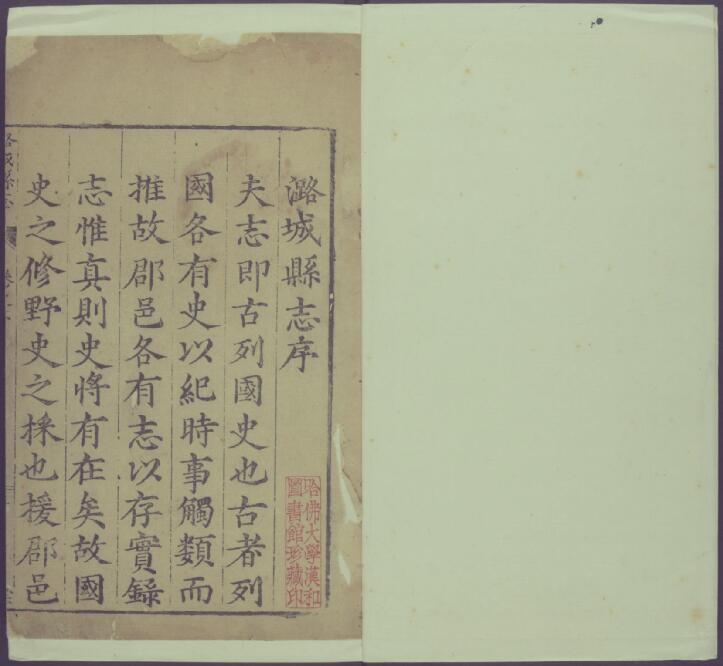 潞城縣志序
夫志即古列國史也古者列
國各有史以紀時事觸類而
推故郡邑各有志以存實録
志惟真則史將有在矣故國
史之修野史之採也援郡邑
哈佛大學漢和
圖書館珍藏印